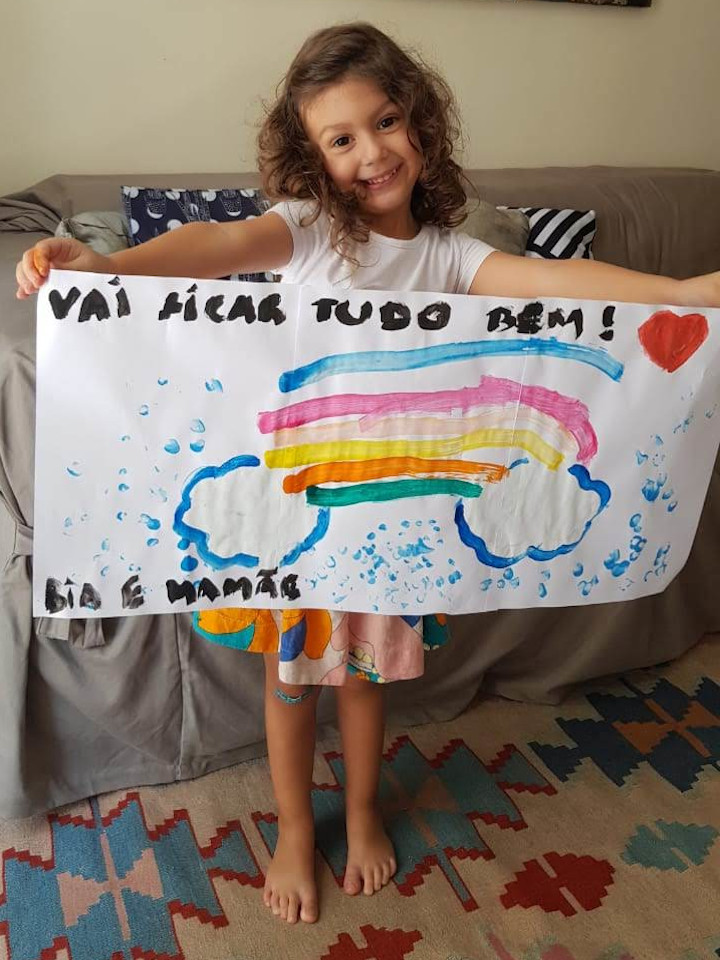 VAI FICAR TUDO BEM!
BIA E MAMÃE